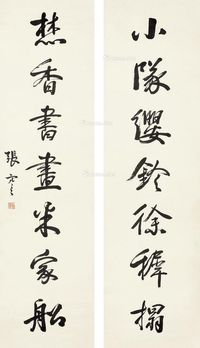 小隊纓鈴徐稺榻
焚香書畫米家船
張